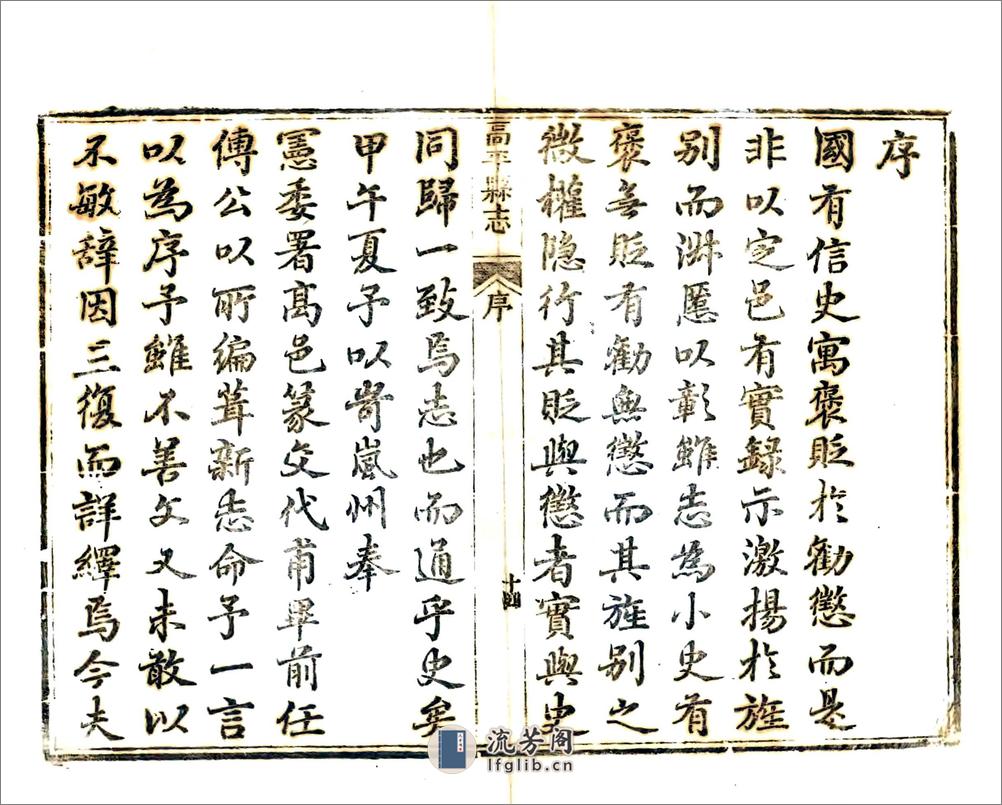 序
國有信史寓褒貶於勸懲而是
非以定邑有實録示激揚於旌
别而淋慝以彰雖志為小史有
褒無貶有勸無懲而其旌别之
微權隐行其貶與懲者實與史
高平縣志
序
十四
同歸一致焉志也而通乎史矣
甲午夏予以岢嵐州奉
憲委署高邑篆交代甫畢前任
傅公以所编葺新志命予一言
以為序予雖不善文又未敢以
不敏辞因三復而詳繹焉今夫
流芳阁
lfglib.cn